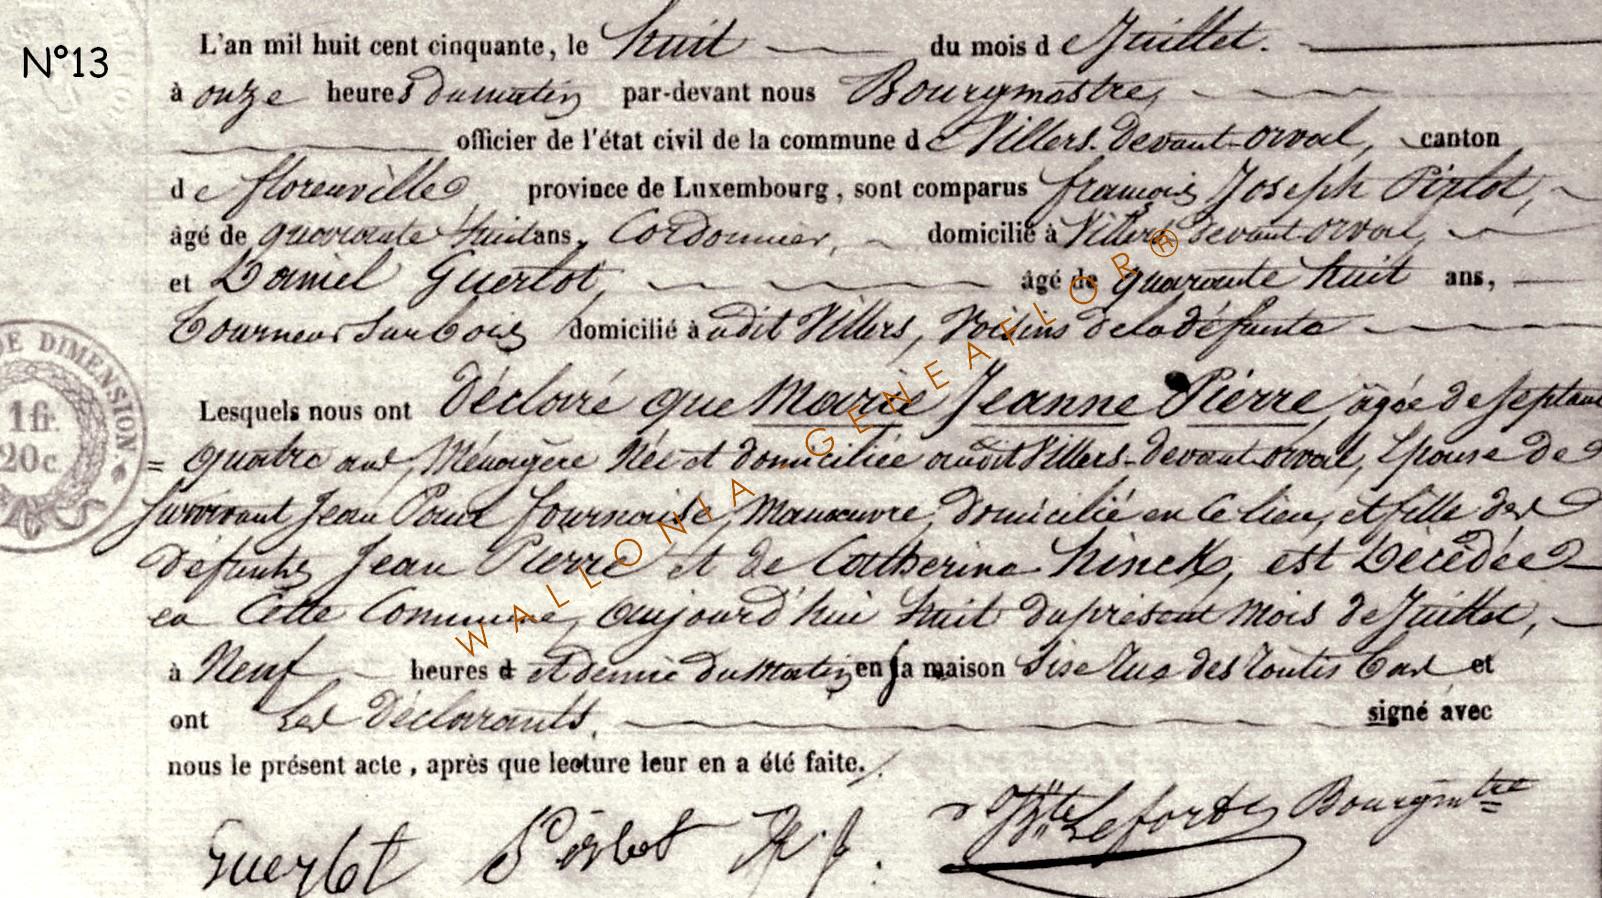 N°13
L'an mil huit cent cinquante, le huit du mois de Juillet.
à onze heures du matin par-devant nous Bourgmestre,
officier de l'état civil de la commune de Villers-devant-orval, canton
de florenville, province de Luxembourg, sont comparus françois Joseph Pirlot,
âgé de quarante huit ans, Cordonnier, domicilié à Villers devant-orval,
et Daniel Guerlot, âgé de quarante huit ans,
Tourneur sur bois, domicilié à audit Villers, Voisins de la défunte
Lesquels nous ont Déclaré que Marie Jeanne Pierre, âgée de septante
= quatre ans, Ménagère Née et domiciliée audit Villers-devant-orval, Epouse de
survivant Jean Fournaise, Manœuvre, domicilié en ce lieu, et fille des
défunts Jean Pierre et de Catherine hinck, est Décédée
en Cette Commune, aujourd'hui huit du présent mois de Juillet,
à Neuf heures d et demie du Matin en sa maison Sise rue des et
ont Les Déclarants, signé avec
nous le présent acte, après que lecture leur en a été faite.
Guerlot Pirlot f. j. Lefort Bourgmtre
DE DIMENSION
1 fr.
20c
WALLONIA GENEAFLOR®